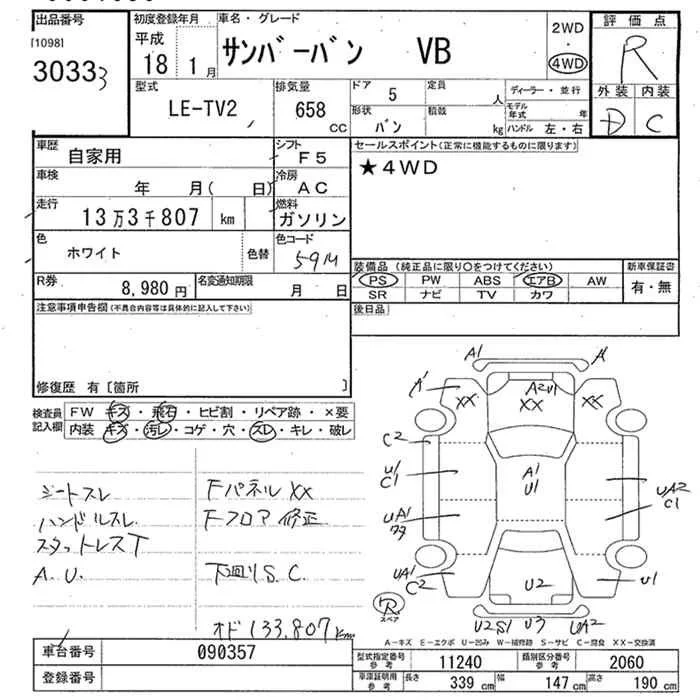 出品番号
[1098]
30333
初度登録年月
平成
18 1月
車名・グレード
サンバーバン VB
2WD
・
4WD
評価点
R
外装 内装
D C
型式
LE-TV2
排気量
658
CC
ドア 5
形状 バン
定員
人
積載
kg
ディーラー・並行
モデル年式
年
ハンドル 左・右
車歴
自家用
シフト
F5
車検
年 月( 日)
冷房
AC
走行
13万3千807 km
燃料
ガソリン
色
ホワイト
色替
色コード
59M
R券
8,980円
名変通知期限
月 日
セールスポイント(正常に機能するものに限ります)
★4WD
装備品 (純正品に限り〇をつけてください)
新車保証書
PS PW ABS エアB AW
SR ナビ TV カワ
有・無
後日品
注意事項申告欄(不具合内容等は具体的に記入して下さい)
修復歴 有〔箇所 〕
検査員
記入欄
FW キズ・飛石・ヒビ割・リペア跡・×要
内装 キズ・汚レ・コゲ・穴・スレ・キレ・破レ
シートスレ
ハンドルスレ
スタットレスT
A.U.
Fパネル XX
Fフロア 修正
下廻りS.C.
オド 133.807km
A1 A1
A1
XX
A2U1
XX
XX
C2
U1
C1
A1
U1
UA2
C1
UA1
ワタ
UA1
C2
U2
U1
R
スペア
U2S1 U3 UA2
A-キズ E-エクボ U-凹み W-補修跡 S-サビ C-腐食 XX-交換済
車台番号
090357
登録番号
型式指定番号
参考
11240
類別区分番号
参考
2060
車庫証明用
参考
長さ 339 cm
幅 147 cm
高さ 190 cm